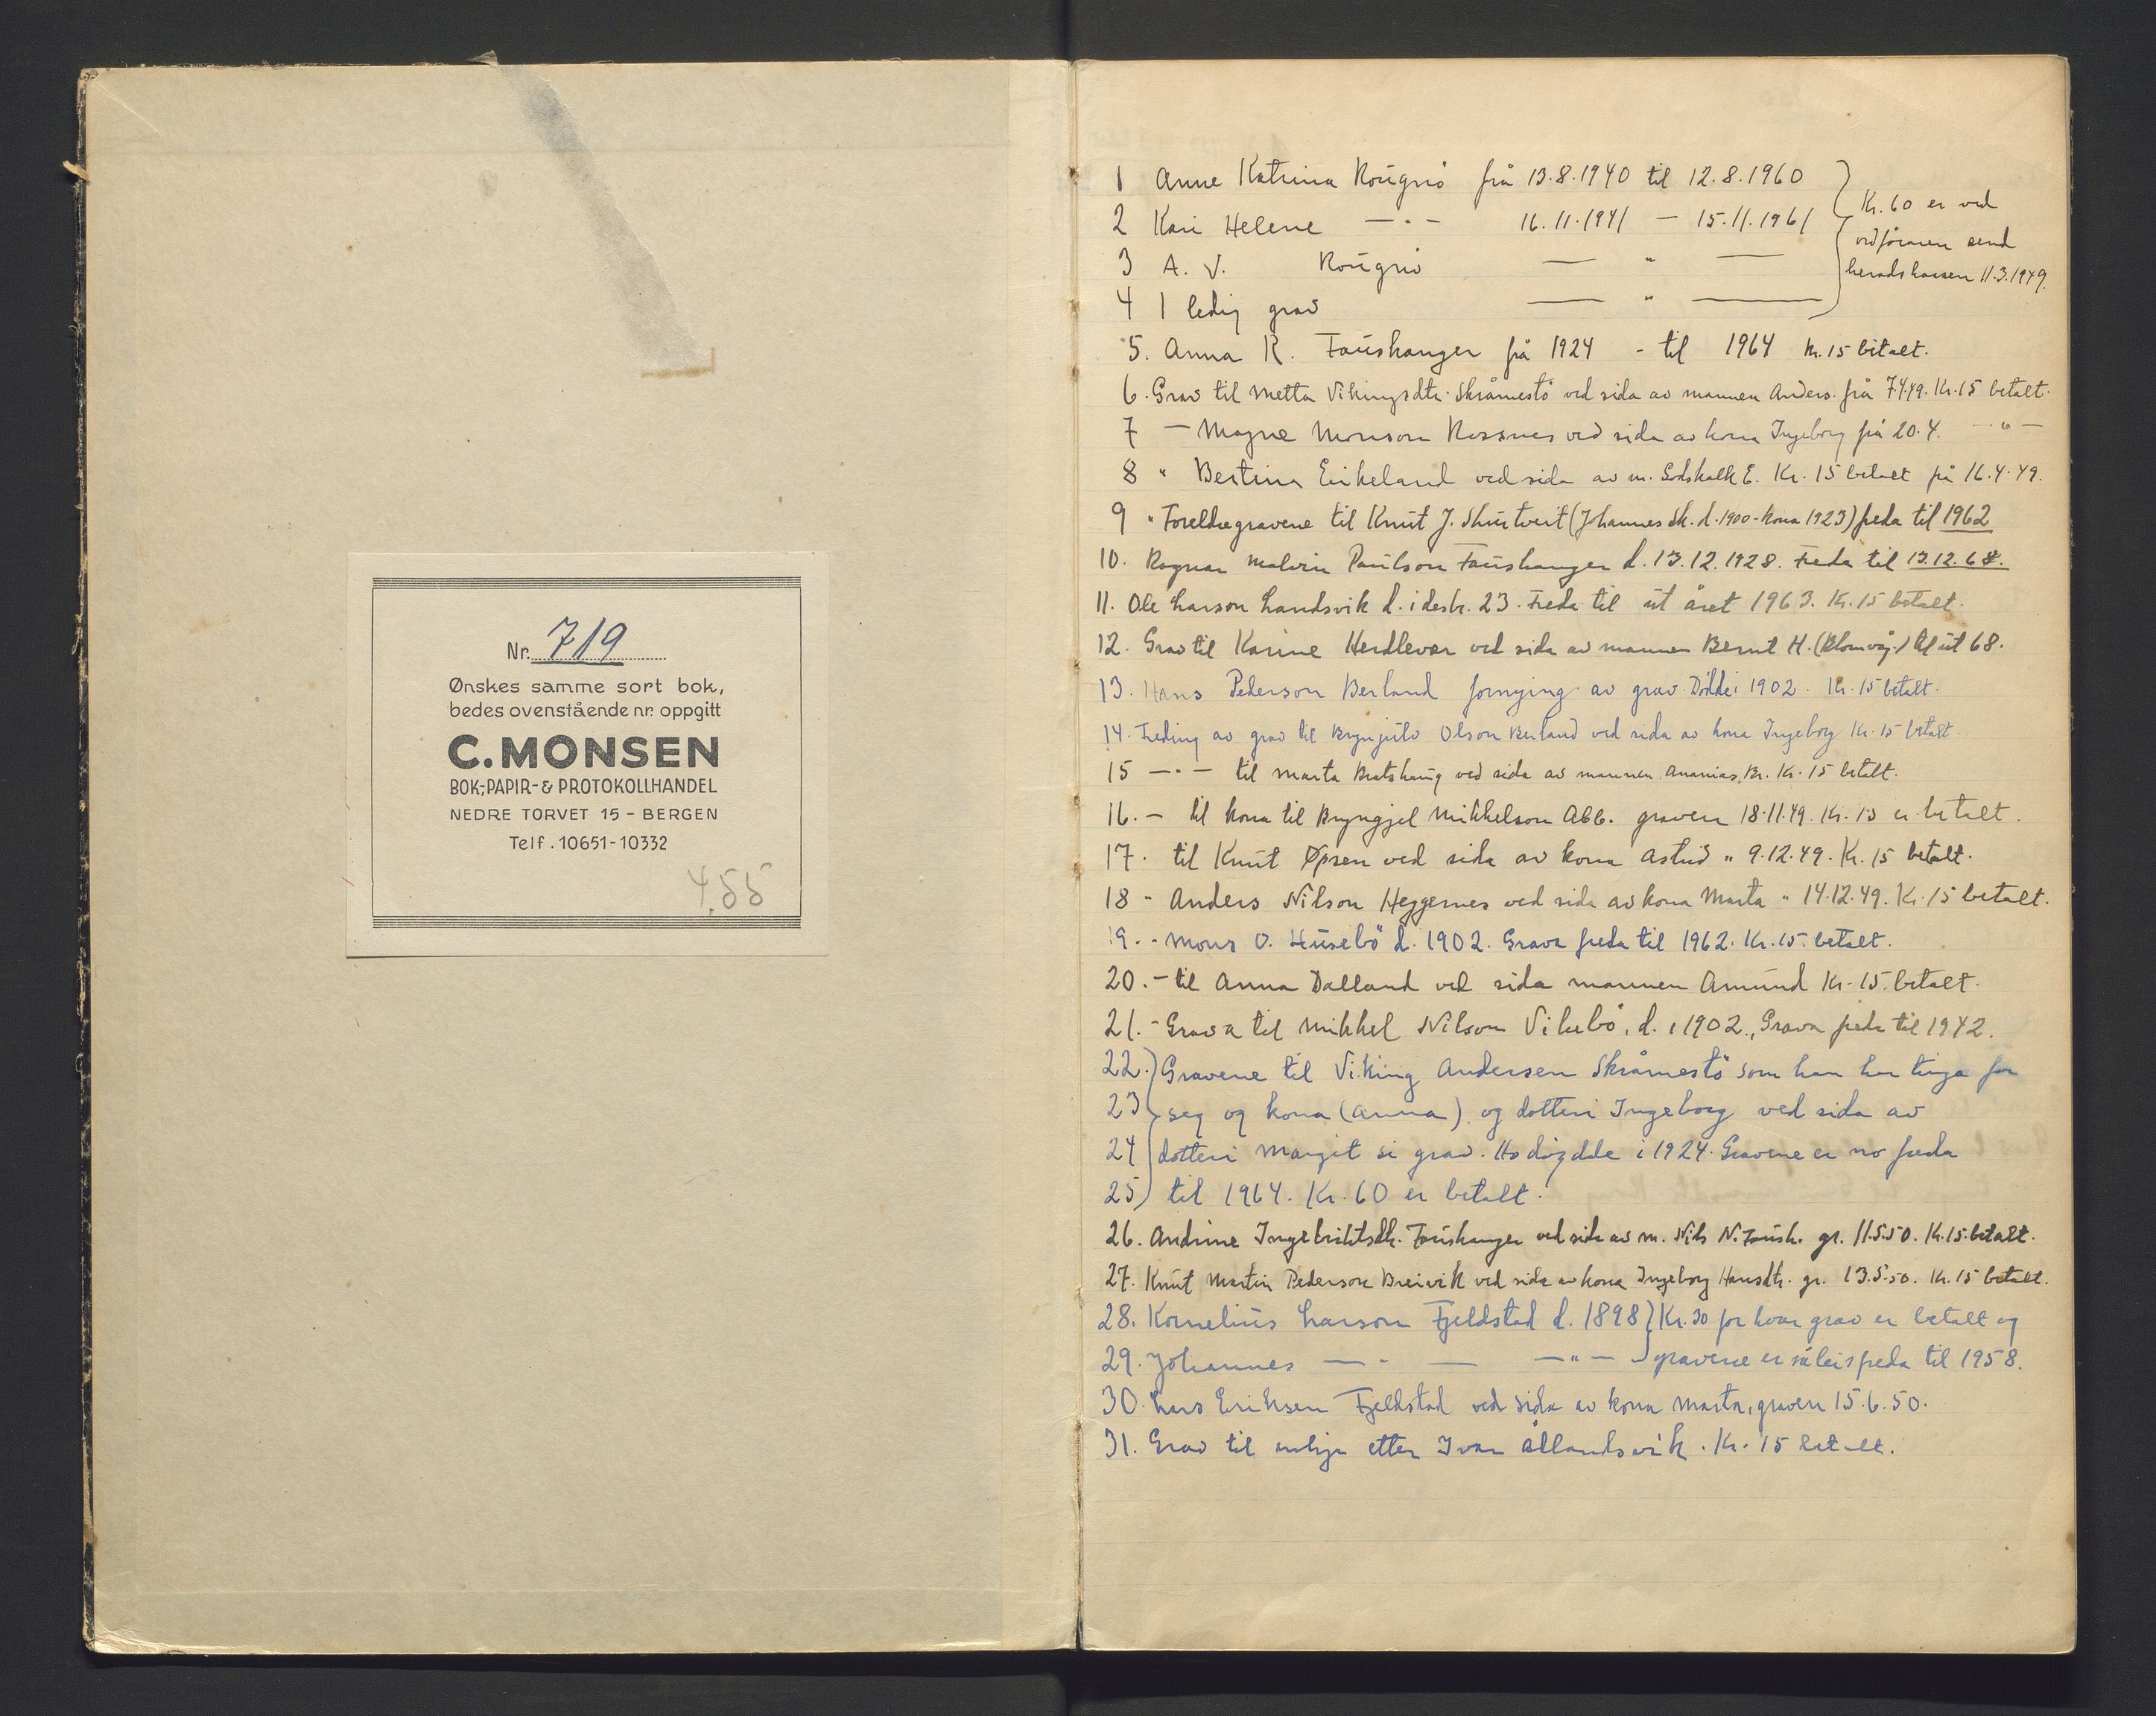 Nr. 719
Ønskes samme sort bok,
bedes ovenstående nr. oppgitt
C. MONSEN
BOK-, PAPIR- & PROTOKOLLHANDEL
NEDRE TORVET 15 - BERGEN
Telf. 10651-10332
4.55
1 Anne Katrina Rougnø frå 13.8.1940 til 12.8.1960
2 Kari Helene — " — 16.11.1941 — 15.11.1961
3 A. V. Rougnø — " —
4 1 ledig grav — " —
Kr. 60 er ved
ordføraren send
heradskassen 11.3.1949.
5. Anna K. Fauskanger frå 1924 - til 1964 kr. 15 betalt.
6. Grav til Metta Vikingsdtr. Skråmestø ved sida av mannen Anders frå 7.4.49. Kr. 15 betalt.
7 — Magne Monson Rossnes ved sida av kona Ingeborg frå 20.4. — " —
8 " Bertina Eikeland ved sida av m. Godskalk E. Kr. 15 betalt frå 16.4.49.
9 " Foreldregravene til Knut J. Skurtveit (Johannes Sk. d. 1900 - kona 1923) freda til 1962
10. Ragnar Malvin Paulson Fauskanger d. 13.12.1928. Freda til 13.12.68.
11. Ole Larson Landsvik d. i desbr. 23. Freda til ut året 1963. Kr. 15 betalt.
12. Grav til Karine Herdlevær ved sida av mannen Bernt H. (Blomvåg) til ut 68.
13. Hans Pederson Berland fornying av grav. Dødde i 1902. Kr. 15 betalt.
14. Freding av grav til Brynjulv Olson Berland ved sida av kona Ingeborg Kr. 15 betalt.
15 — " — til Marta Bratshaug ved sida av mannen Ananias Br. Kr. 15 betalt.
16. — til kona til Bryngjel Mikkelson Abb. graven 18.11.49. Kr. 15 er betalt.
17. til Knut Øpsen ved sida av kona Astrid " 9.12.49. Kr. 15 betalt.
18 " Anders Nilson Heggernes ved sida av kona Marta " 14.12.49. Kr. 15 betalt.
19. - Mons O. Husebø d. 1902. Grava freda til 1962. Kr. 15. betalt.
20. - til Anna Dalland ved sida mannen Amund Kr. 15. betalt.
21. - Grava til Mikkel Nilson Vikebø, d. i 1902., Grava freda til 1942.
22. Gravene til Viking Andersen Skråmestø som han har tinga for
23 seg og kona (Anna) og dotteri Ingeborg ved sida av
24 dotteri Margit si grav. Ho døydde i 1924. Gravene er no freda
25 til 1964. Kr. 60 er betalt.
26. Andrine Ingebriktsdtr. Fauskanger ved sida av m. Nils N. Fausk. gr. 11.5.50. Kr. 15. betalt.
27. Knut Martin Pederson Breivik ved sida av kona Ingeborg Hansdtr. gr. 13.5.50. Kr. 15 betalt.
28. Kornelius Larson Fjeldstad d. 1898 Kr. 30 for kvar grav er betalt og
29. Johannes — " — — " — gravene er såleis freda til 1958.
30. Lars Eriksen Fjeldstad ved sida av kona Marta, graven 15.6.50.
31. Grav til enkja etter Ivar Ållandsvik. Kr. 15 betalt.